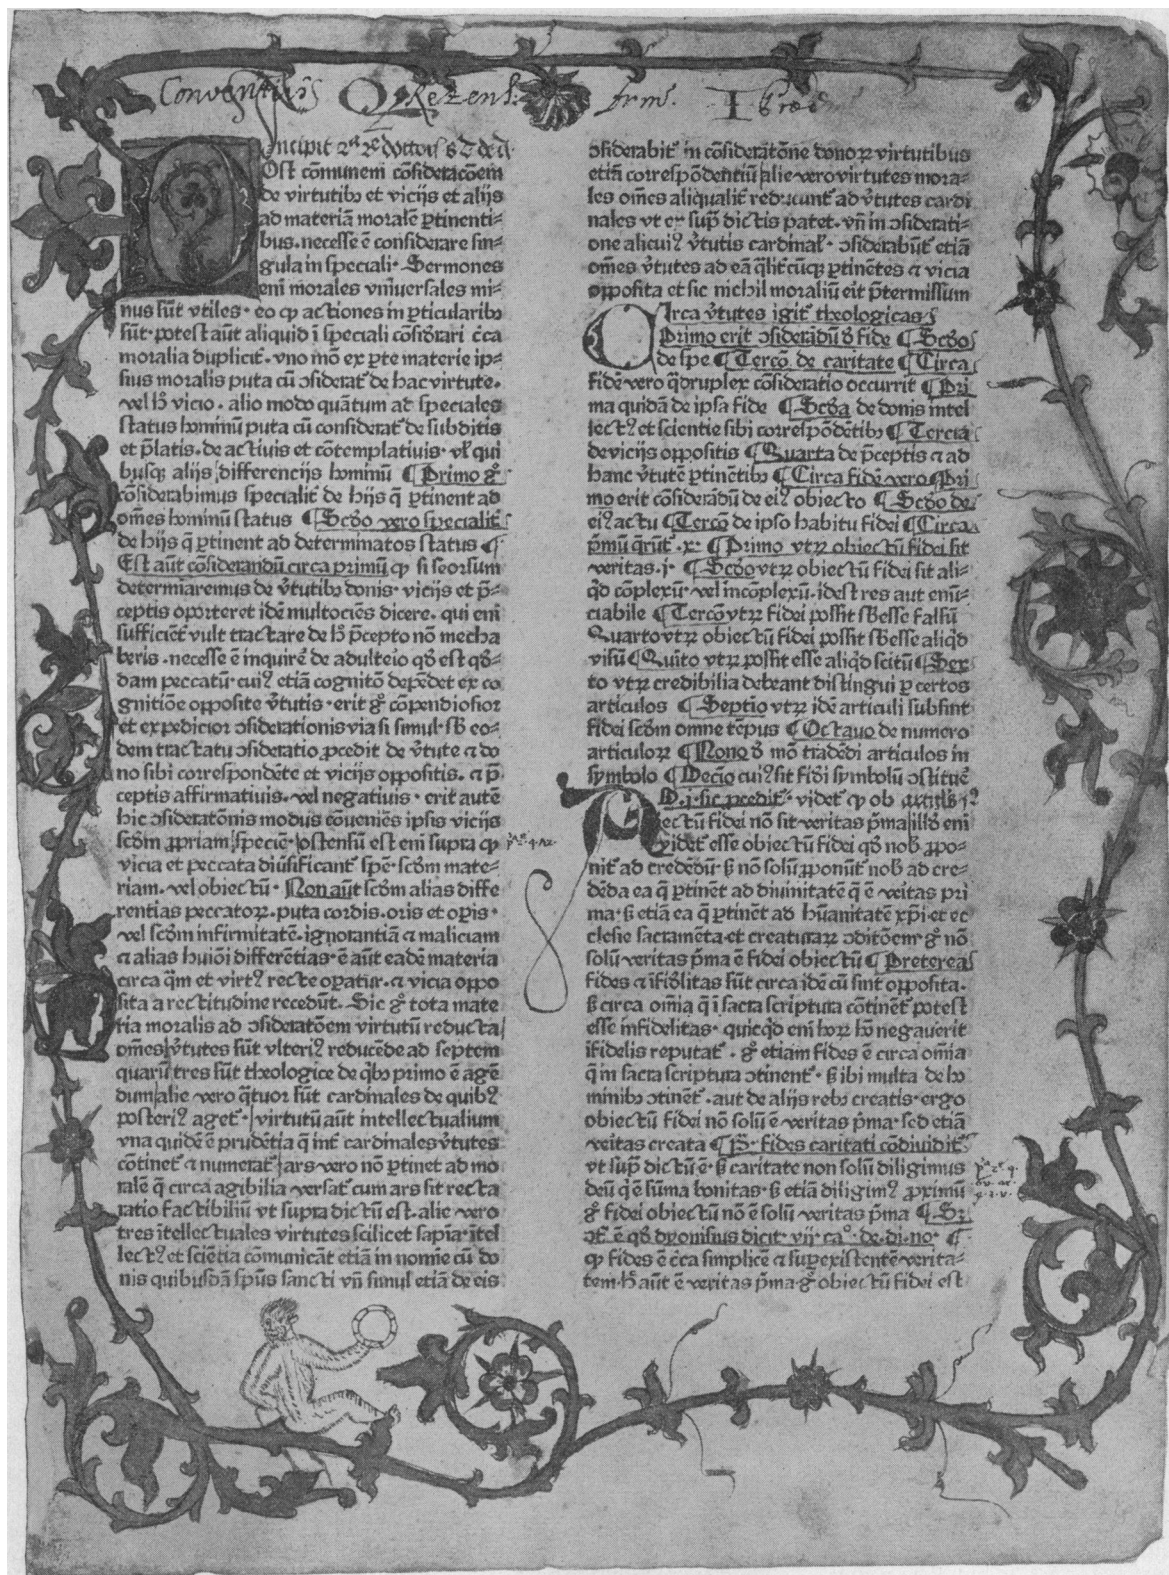 Conventus Rezens. frm.
Incipit 2ᵃ 2ᵉ doctoris s T de aq̄
POst cōmunem cōsideracōem
de virtutibꝫ et vicijs et alijs
ad materiā moralē ꝑtinenti⸗
bus. necesse ē considerare sin⸗
gula in speciali. Sermones
eni᷒ morales vniuersales mi⸗
nus sūt vtiles. eo ꝙ actiones in ꝑticularibꝫ
sūt. potest aūt aliquid ī speciali cōsiđrari c̄ca
moralia duplicit̄. vno mō ex ꝑte materie ip⸗
sius moralis puta cū ɔsiderat᷒ de hac virtute.
vel hͦ vicio. alio modo quātum ad speciales
status hominū puta cū considerat᷒ de subditis
et p̄latis. de activis et cōtemplativis. vł qui
busqꝫ alijs differencijs hominū ¶ Primo gͦ
cōsiderabimus specialit̄ de hijs q̄ ꝑtinent ad
om̄es hominū status ¶ Scđo vero specialit̄
de hijs q̄ ꝑtinent ad determinatos status ¶
Est aūt cōsiderandū circa primū ꝙ si seorsum
determiaremus de v̄tutibꝫ donis. vicijs et p̄⸗
ceptis oporteret idē multociēs dicere. qui eni᷒
sufficiēt̄ vult tractare de hͦ p̄cepto nō mecha
beris. necesse ē inquirē de adulteio qđ est qđ⸗
dam peccatū. cuiꝰ etiā cognitō depēdet ex co
gnitiōe opposite v̄tutis. erit gͦ cōpendiosior
et expedicior ɔsiderationis via si simul. sb̄ eo⸗
dem tractatu ɔsideratio ꝓcedit de v̄tute ⁊ do
no sibi correspondēte et vicijs oppositis. ⁊ p̄
ceptis affirmatiuis. vel negativis. erit autē
hic ɔsideratōnis modus cōueniēs ipsis vicijs
scđm ꝓpriam speciē. ostensū est eni᷒ supra ꝙ
vicia et peccata diūsificant᷒ spē. scđm mate⸗
riam. vel obiectū. Non aūt scđm alias diffe
rentias peccatoꝝ. puta cordis. oris et oꝑis.
vel scđm infirmitatē. ignorantiā ⁊ maliciam
⁊ alias huiōi differētias. ē aūt eadē materia
circa q̄m et virtꝰ recte oꝑatur. ⁊ vicia oppo
sita a rectitudine recedūt. Sic gͦ tota mate
ria moralis ad ɔsideratōem virtutū reducta
om̄es v̄tutes sūt vlteriꝰ reducēde ad septem
quarū tres sūt theologice de q̄bꝫ primo ē agē
dum alie vero q̄tuor sūt cardinales de quibꝰ
posteriꝰ aget᷒. virtutū aūt intellectualium
vna quidē ē prudētia q̄ int̄ cardinales v̄tutes
cōtinet᷒ ⁊ numerat᷒ ars vero nō ꝑtinet ad mo
ralē q̄ circa agibilia versat᷒ cum ars sit recta
ratio factibiliū vt supra dictū est. alie vero
tres ītellectuales virtutes scilicet sapīa. ītel
lectꝰ et sciētia cōmunicāt etiā in nomie cū do
nis quibusdā spūs sancti vn̄ simul etiā de eis
ɔsiderabit᷒ in cōsideratōne donoꝝ virtutibus
etiā correspōdentiū alie vero virtutes mora⸗
les om̄es aliqualit̄ reducunt᷒ ad v̄tutes cardi
nales vt ex sup̄ dictis patet. vn̄ in ɔsiderati⸗
one alicuiꝰ v̄tutis cardinał. ɔsiderabūt᷒ etiā
om̄es v̄tutes ad eā q̄lit̄cūqꝫ ꝑtinētes ⁊ vicia
opposita et sic nichil moraliū eit p̄termissum
CIrca v̄tutes igit᷒ theologicas
Primo erit ɔsiderādū đ fide ¶ Scđo
de spe ¶ Tercō de caritate ¶ Circa
fidē vero q̄druplex cōsideratio occurrit ¶ Pri
ma quidā de ipsa fide ¶ Scđa de donis intel
lectꝰ et scientie sibi correspōdētibꝫ ¶ Tercia
de vicijs oppositis ¶ Quarta de p̄ceptis ⁊ ad
hanc v̄tutē ꝑtinētibꝫ ¶ Circa fidē vero Pri
mo erit cōsideradū de eiꝰ obiecto ¶ Scđo de
eiꝰ actu ¶ Tercō de ipso habitu fidei ¶ Circa
p̄mū q̄rūt᷒ .x. ¶ Primo vtꝝ obiectū fidei sit
veritas .j. ¶ Scđo vtꝝ obiectū fidei sit ali⸗
q̇d cōplexū. vel incōplexū. idest res aut enū⸗
ciabile ¶ Tercō vtꝝ fidei possit sb̄esse falsū
Quarto vtꝝ obiectū fidei possit sb̄esse aliq̇d
visū ¶ Quīto vtꝝ possit esse aliq̇d scitū ¶ Sex
to vtꝝ credibilia debeant distingui ꝑ certos
articulos ¶ Septīo vtꝝ idē articuli subsint
fidei scđm omne tēpus ¶ Octauo de numero
articuloꝝ ¶ Nono đ mō tradēdi articulos in
symbolo ¶ Decīo cuiꝰ sit fiđi symbolū ɔstituē
AD .j. sic ꝓcedit᷒. videt᷒ ꝙ ob
iectū fidei nō sit veritas p̄ma illđ eni᷒
videt᷒ esse obiectū fidei qđ nob̄ ꝓpo⸗
nit᷒ ad credēdū. s̄ nō solū ꝓponūt᷒ nob̄ ad cre⸗
dēda ea q̄ ꝑtinēt ad diuinitatē q̄ ē vēitas pri
ma. s̄ etiā ea q̄ ꝑtinēt ad hūanitatē xp̄i. et ec
clesie sacramēta. et creaturaꝝ ɔditōem. gͦ nō
solū veritas p̄ma ē fidei obiectū ¶ Preterea
fides ⁊ īfiđlitas sūt circa idē cū sint opposita.
s̄ circa om̄ia q̄ ī sacra scriptura cōtinēt᷒ potest
esse infidelitas. quicq̇d eni᷒ hoꝝ hō negauerit
īfidelis reputat᷒. gͦ etiam fides ē circa om̄ia
q̄ in sacra scriptura ɔtinent᷒. s̄ ibi multa de ho
minibꝫ ɔtinēt᷒. aut de alijs rebꝫ creatis. ergo
obiectū fidei nō solū ē veritas p̄ma. sed etiā
vēitas creata ¶ P̄t. fides caritati cōdiuidit᷒
vt sup̄ dictū ē. s̄ caritate non solū diligimus
deū q̇ ē sūma bonitas. s̄ etiā diligimꝰ ꝓximū
gͦ fidei obiectū nō ē solū veritas p̄ma ¶ Sꝫ
ɔt̄ ē qđ dyonisius dicit. vij. caͦ. de. di. no. ¶
ꝙ fides ē c̄ca simplicē ⁊ suꝑexistentē verita⸗
tem. h̄ aūt ē veritas p̄ma. gͦ obiectū fidei est